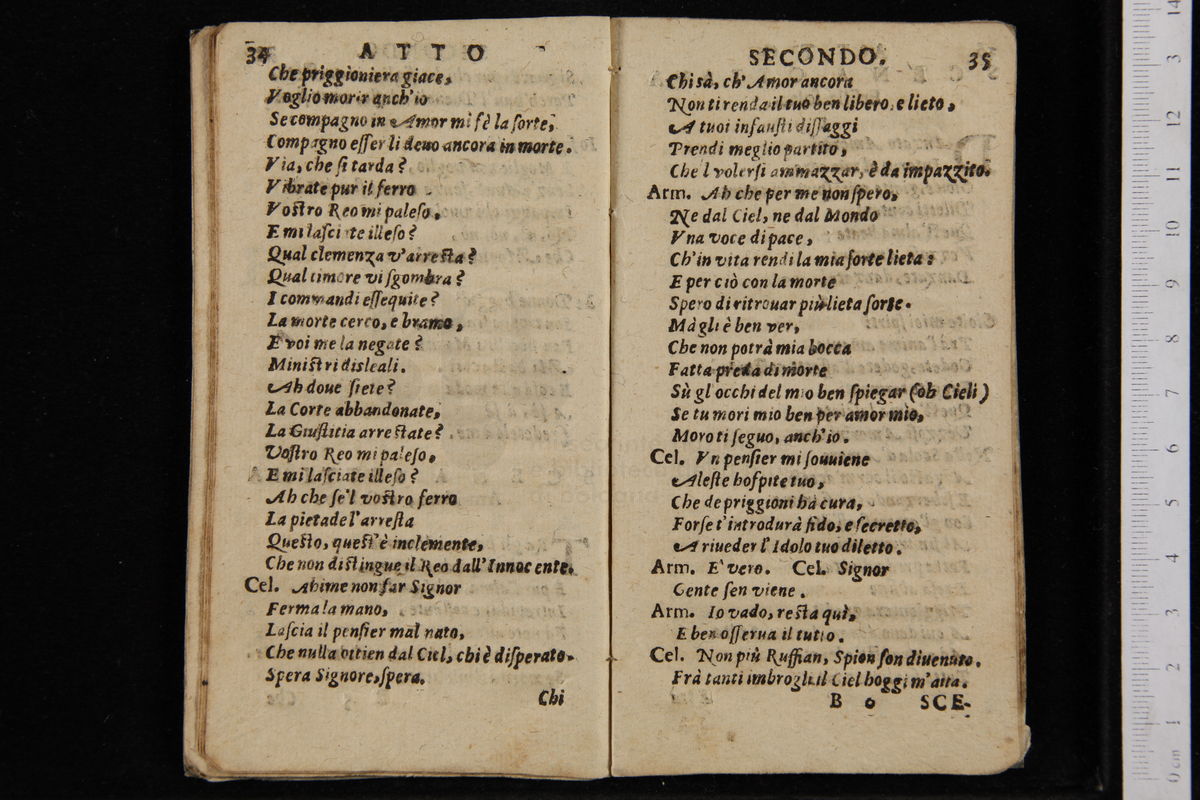 34 ATTO
Che priggioniera giace,
Voglio morir anch'io
Se compagno in Amor mi fè la sorte,
Compagno esser li deuo ancora in morte.
Via, che si tarda?
Vibrate pur il ferro
Vostro Reo mi paleso,
E mi lasciate illeso?
Qual clemenza v'arresta?
Qual timore vi sgombra?
I commandi essequite?
La morte cerco, e bramo,
E voi me la negate?
Ministri disleali.
Ah doue siete?
La Corte abbandonate,
La Giustitia arrestate?
Vostro Reo mi paleso,
E mi lasciate illeso?
Ah che se'l vostro ferro
La pietade l'arresta
Questo, quest'è inclemente,
Che non distingue il Reo dall'Innocente.
Cel. Ahime non far Signor
Ferma la mano,
Lascia il pensier mal nato,
Che nulla ottien dal Ciel, chi è disperato.
Spera Signore, spera.
Chi
SECONDO. 35
Chi sà, ch'Amor ancora
Non ti renda il tuo ben libero, e lieto,
A tuoi infausti dissaggi
Prendi meglio partito,
Che'l volersi ammazzar, è da impazzito.
Arm. Ah che per me non spero,
Ne dal Ciel, ne dal Mondo
Vna voce di pace,
Ch'in vita rendi la mia sorte lieta:
E per ciò con la morte
Spero di ritrouar più lieta sorte.
Mà gli è ben ver,
Che non potrà mia bocca
Fatta preda di morte
Sù gl'occhi del mio ben spiegar (oh Cieli)
Se tu mori mio ben per amor mio,
Moro ti seguo, anch'io.
Cel. Vn pensier mi souuiene
Aleste hospite tuo,
Che de priggioni hà cura,
Forse t'introdurà fido, e secretto,
A riueder l'Idolo tuo diletto.
Arm. E' vero. Cel. Signor
Gente sen viene.
Arm. Io vado, resta quì,
E ben osserua il tutto.
Cel. Non più Ruffian, Spion son diuenuto.
Frà tanti imbrogli il Ciel hoggi m'aita.
B 6 SCE-